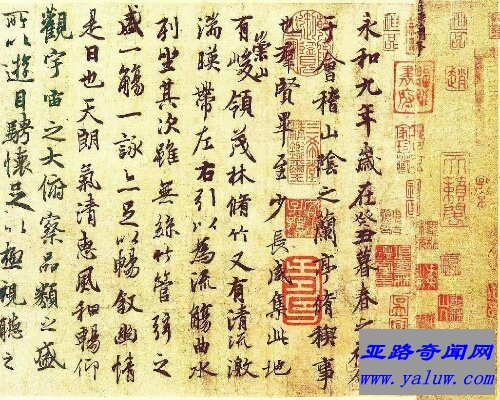 永和九年歲在癸丑暮春之初
于會稽山陰之蘭亭脩禊事
也羣賢畢至少長咸集此地
有崇山峻領茂林脩竹又有清流激
湍暎帶左右引以為流觴曲水
列坐其次雖無絲竹管弦之
盛一觴一詠亦足以暢敘幽情
是日也天朗氣清惠風和暢仰
觀宇宙之大俯察品類之盛
所以遊目騁懷足以極視聽之
亚路奇闻网
www.yaluw.com